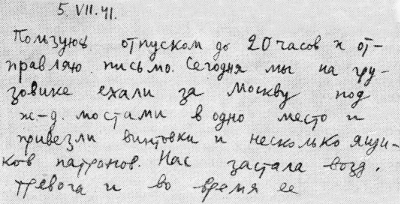 5 VII.41.
Пользуюсь отпуском до 20 часов и от-
правляю письмо. Сегодня мы на гру-
зовике ехали за Москву под
ж-д. мостами в одно место и
привезли винтовки и несколько ящи-
ков патронов. Нас застала возд.
тревога и во время ее